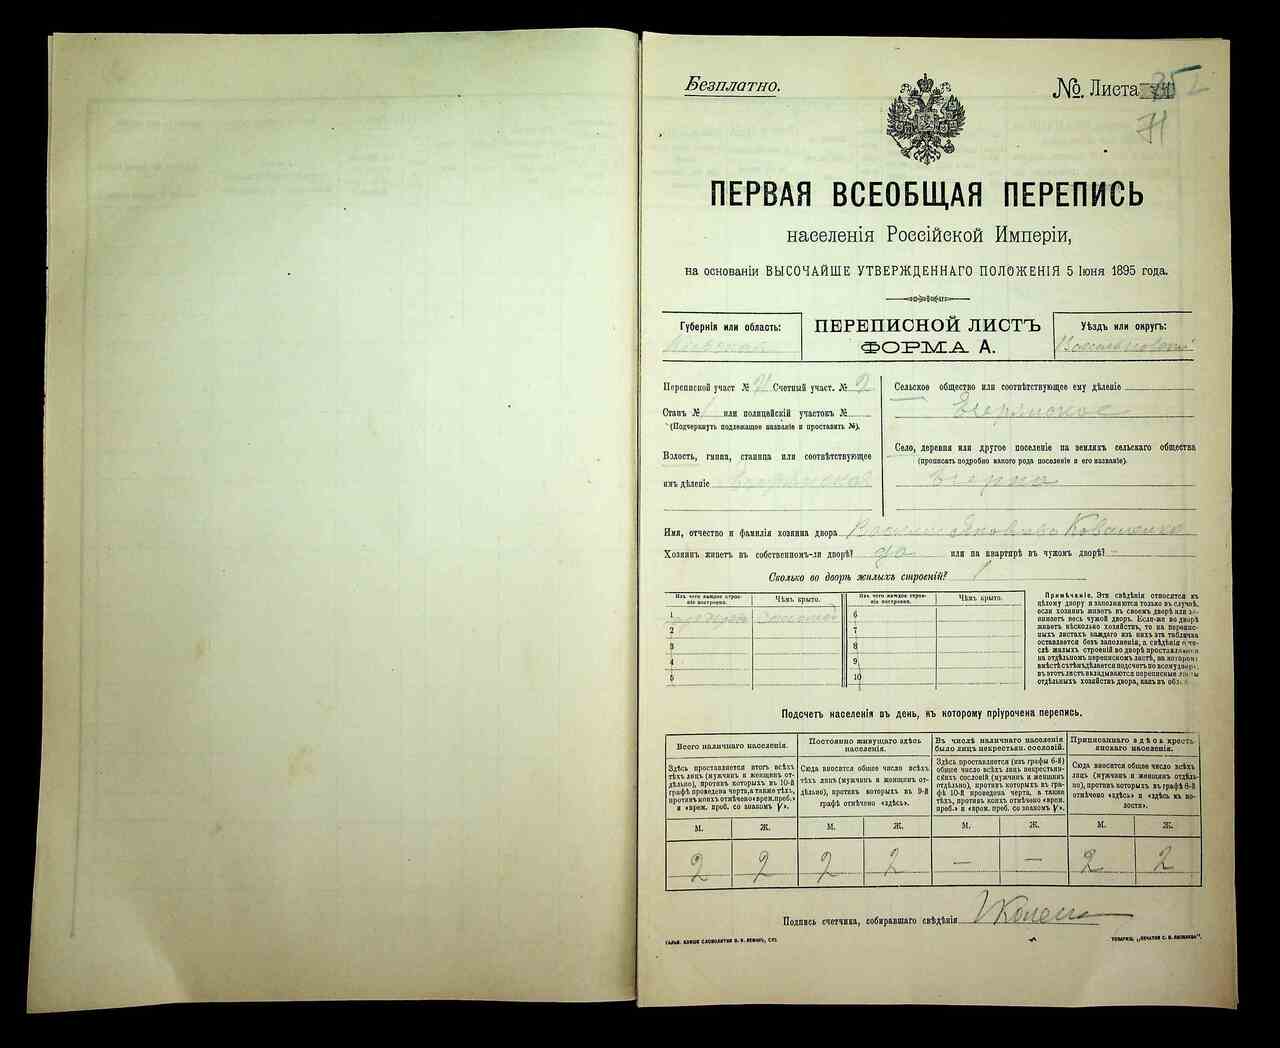 Безплатно.
№. Листа
71
ПЕРВАЯ ВСЕОБЩАЯ ПЕРЕПИСЬ
населенія Россійской Имперіи,
на основаніи ВЫСОЧАЙШЕ УТВЕРЖДЕННАГО ПОЛОЖЕНІЯ 5 Іюня 1895 года.
Губернія или область:
ПЕРЕПИСНОЙ ЛИСТЪ
ФОРМА А.
Уѣздъ или округъ:
Переписной участ № Счетный участ. № 2
Станъ № 1 или полицейскій участокъ №
(Подчеркнуть подлежащее названіе и проставить №).
Волость, гмина, станица или соотвѣтствующее
имъ дѣленіе
Сельское общество или соотвѣтствующее ему дѣленіе
Село, деревня или другое поселеніе на земляхъ сельскаго общества
(прописать подробно какого рода поселеніе и его названіе).
Имя, отчество и фамилія хозяина двора Коваленко
Хозяинъ живетъ въ собственномъ-ли дворѣ? да или на квартирѣ въ чужомъ дворѣ? -
Сколько во дворѣ жилыхъ строеній? 1
Изъ чего каждое строе-
ніе построено.
Чѣмъ крыто.
1 соломой
2
3
4
5
Изъ чего каждое строе-
ніе построено.
Чѣмъ крыто.
6
7
8
9
10
Примѣчаніе. Эти свѣдѣнія относятся къ
цѣлому двору и заполняются только въ случаѣ,
если хозяинъ живетъ въ своемъ дворѣ или за-
нимаетъ весь чужой дворъ. Если-же во дворѣ
живетъ нѣсколько хозяйствъ, то на перепис-
ныхъ листахъ каждаго изъ нихъ эта табличка
оставляется безъ заполненія, а свѣдѣнія о чи-
слѣ жилыхъ строеній во дворѣ проставляются
на отдѣльномъ переписномъ листѣ, на которомъ
вмѣстѣ съ тѣмъ дѣлается подсчетъ по всему двору,
въ этотъ листъ вкладываются переписные листы
отдѣльныхъ хозяйствъ двора, какъ въ обл.
Подсчетъ населенія въ день, къ которому пріурочена перепись.
Всего наличнаго населенія.
Здѣсь проставляется итогъ всѣхъ
тѣхъ лицъ (мужчинъ и женщинъ от-
дѣльно), противъ которыхъ въ 10-й
графѣ проведена черта, а также тѣхъ,
противъ коихъ отмѣчено «врем. преб.»
и «врем. проб. со знакомъ V».
Постоянно живущаго здѣсь
населенія.
Сюда вносится общее число всѣхъ
тѣхъ лицъ (мужчинъ и женщинъ от-
дѣльно), противъ которыхъ въ 9-й
графѣ отмѣчено «здѣсь».
Въ числѣ наличнаго населенія
было лицъ некрестьян. сословій.
Здѣсь проставляется (изъ графы 6-й)
общее число всѣхъ лицъ некрестьян-
скихъ сословій (мужчинъ и женщинъ
отдѣльно), противъ которыхъ въ гра-
фѣ 10-й проведена черта, а также
тѣхъ, противъ коихъ отмѣчено «врем.
преб.» и «врем. проб. со знакомъ V».
Приписаннаго здѣсь кресть-
янскаго населенія.
Сюда вносится общее число всѣхъ
лицъ (мужчинъ и женщинъ отдѣль-
но), противъ которыхъ въ графѣ 8-й
отмѣчено «здѣсь» и «здѣсь въ во-
лости».
М. Ж. М. Ж. М. Ж. М. Ж.
2 2 2 2 — — 2 2
Подпись счетчика, собиравшаго свѣдѣнія